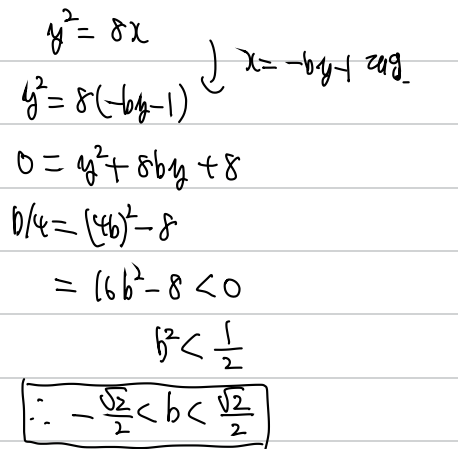 y² = 8x
x = -by-1 대입
y² = 8(-by-1)
0 = y² + 8by + 8
D/4 = (4b)² - 8
= 16b² - 8 < 0
b² < 1/2
∴ -√2/2 < b < √2/2